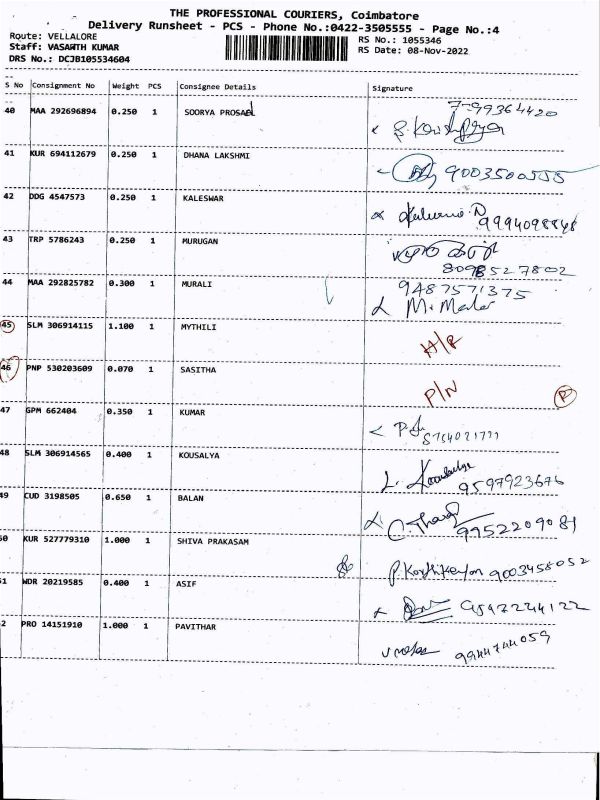 THE PROFESSIONAL COURIERS, Coimbatore
Delivery Runsheet - PCS - Phone No.:0422-3505555 - Page No.:4
Route: VELLALORE
RS No.: 1055346
Staff: VASANTH KUMAR
RS Date: 08-Nov-2022
DRS No.: DCJB105534604
S No Consignment No Weight PCS Consignee Details Signature
40 MAA 292696894 0.250 1 SOORYA PROSAD
41 KUR 694112679 0.250 1 DHANA LAKSHMI 9003500555
42 DDG 4547573 0.250 1 KALESWAR 9994098848
43 TRP 5786243 0.250 1 MURUGAN
8098527802
44 MAA 292825782 0.300 1 MURALI 9487571375
45 SLM 306914115 1.100 1 MYTHILI
46 PNP 530203609 0.070 1 SASITHA P/N
47 GPM 662404 0.350 1 KUMAR
48 SLM 306914565 0.400 1 KOUSALYA
9597923676
49 CUD 3198505 0.650 1 BALAN 9952209081
50 KUR 527779310 1.000 1 SHIVA PRAKASAM 9003458052
51 WDR 20219585 0.400 1 ASIF
52 PRO 14151910 1.000 1 PAVITHAR 9944744059